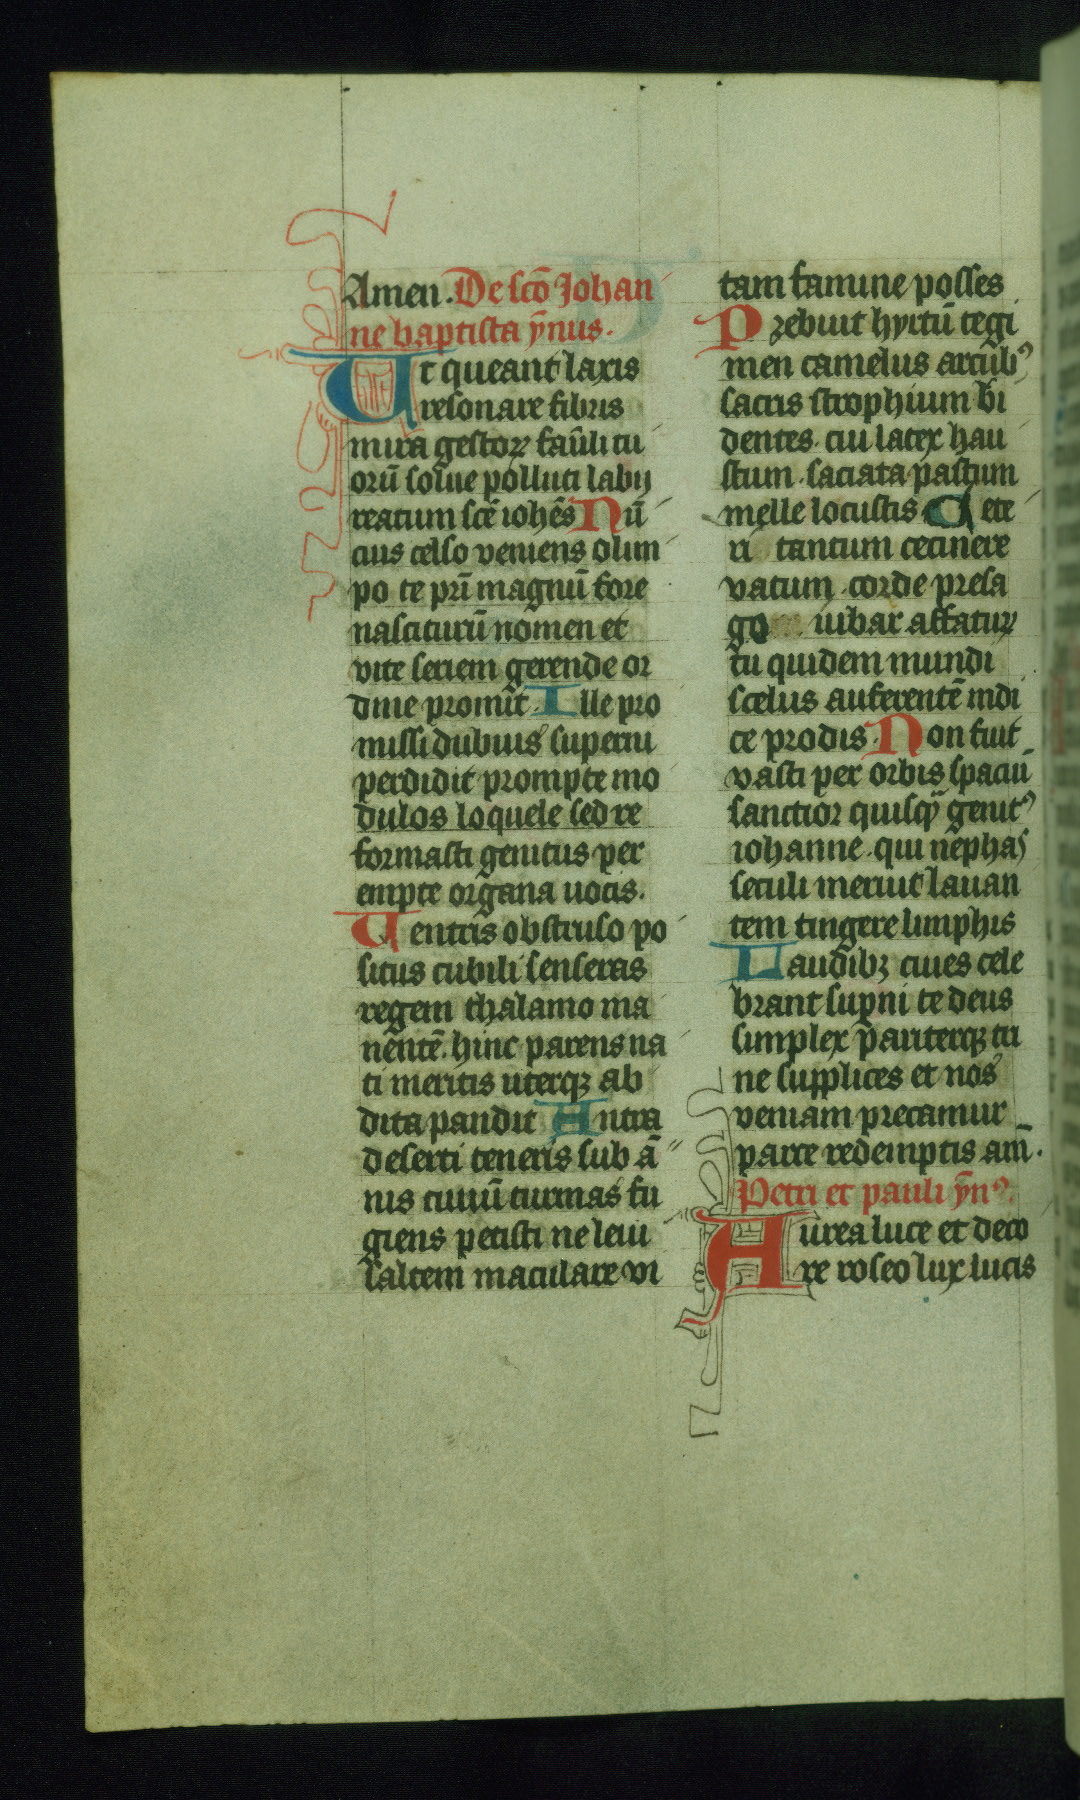 Amen. De sc̄o Johan
ne baptista ȳnus.
Ut queant laxis
resonare fibris
mira gestoꝝ famuli tu
orū solue polluti labij
reatum sc̄e ioh̄es Nū
cius celso veniens olim
po te pr̄i magnū fore
nasciturū nomen et
vite seriem gerende or
dine promit. Ille pro
missi dubius superni
perdidit prompte mo
dulos loquele sed re
formasti genitus per
empte organa uocis.
Uentris obstruso po
situs cubili senseras
regem thalamo ma
nentē. hinc parens na
ti meritis uterqꝫ ab
dita pandit Antra
deserti teneris sub ā
nis ciuiū turmas fu
giens petisti ne leui
saltem maculare vi
tam famine posses
Prebuit hyrtū tegi
men camelus artubꝰ
sacris strophium bi
dentes. cui latex hau
stum. saciata pastum
melle locustis Cete
ri tantum cecinere
vatum. corde presa
go iubar affatuꝝ
tu quidem mundi
scelus auferentē indi
ce prodis. Non fuit
vasti per orbis spaciū
sanctior quisq̄ genitꝰ
iohanne. qui nephas
seculi meruit lauan
tem tingere limphis
Laudibꝫ ciues cele
brant sup̄ni te deus
simplex pariterqꝫ tri
ne supplices et nos
veniam precamur
parce redemptis am̄.
Petri et pauli ȳnꝰ.
Aurea luce et deco
re roseo lux lucis